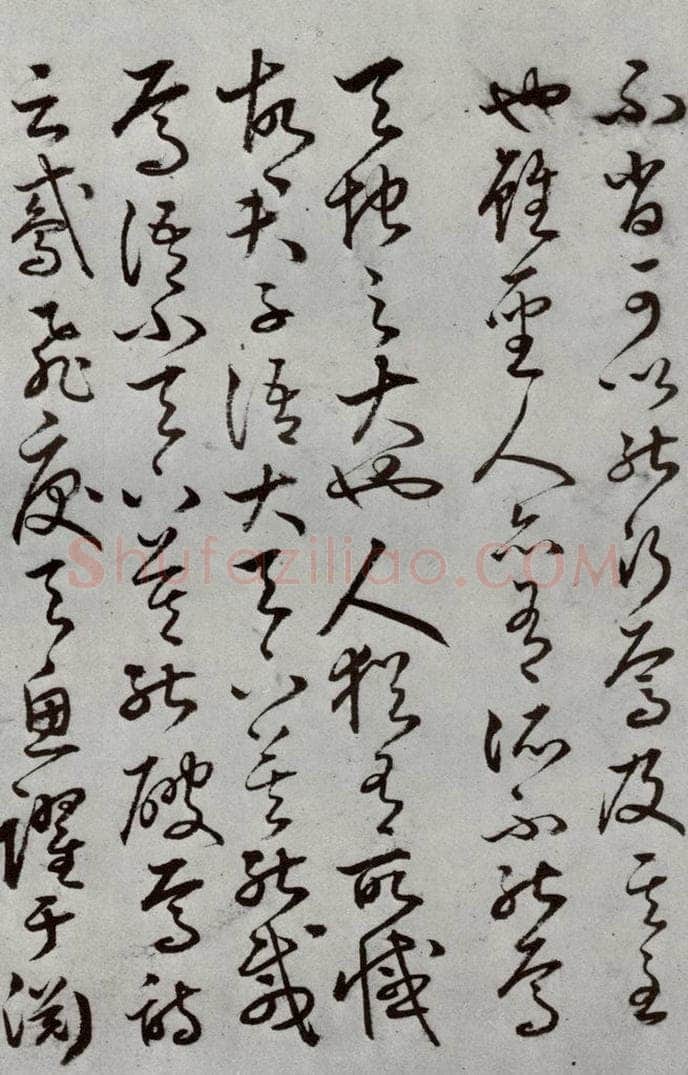 不肖可以能行焉及其至
也雖聖人亦有所不能焉
天地之大也人猶有所憾
故君子語大天下莫能載
焉語小天下莫能破焉詩
云鳶飛戾天魚躍于淵
Shufaziliao.COM